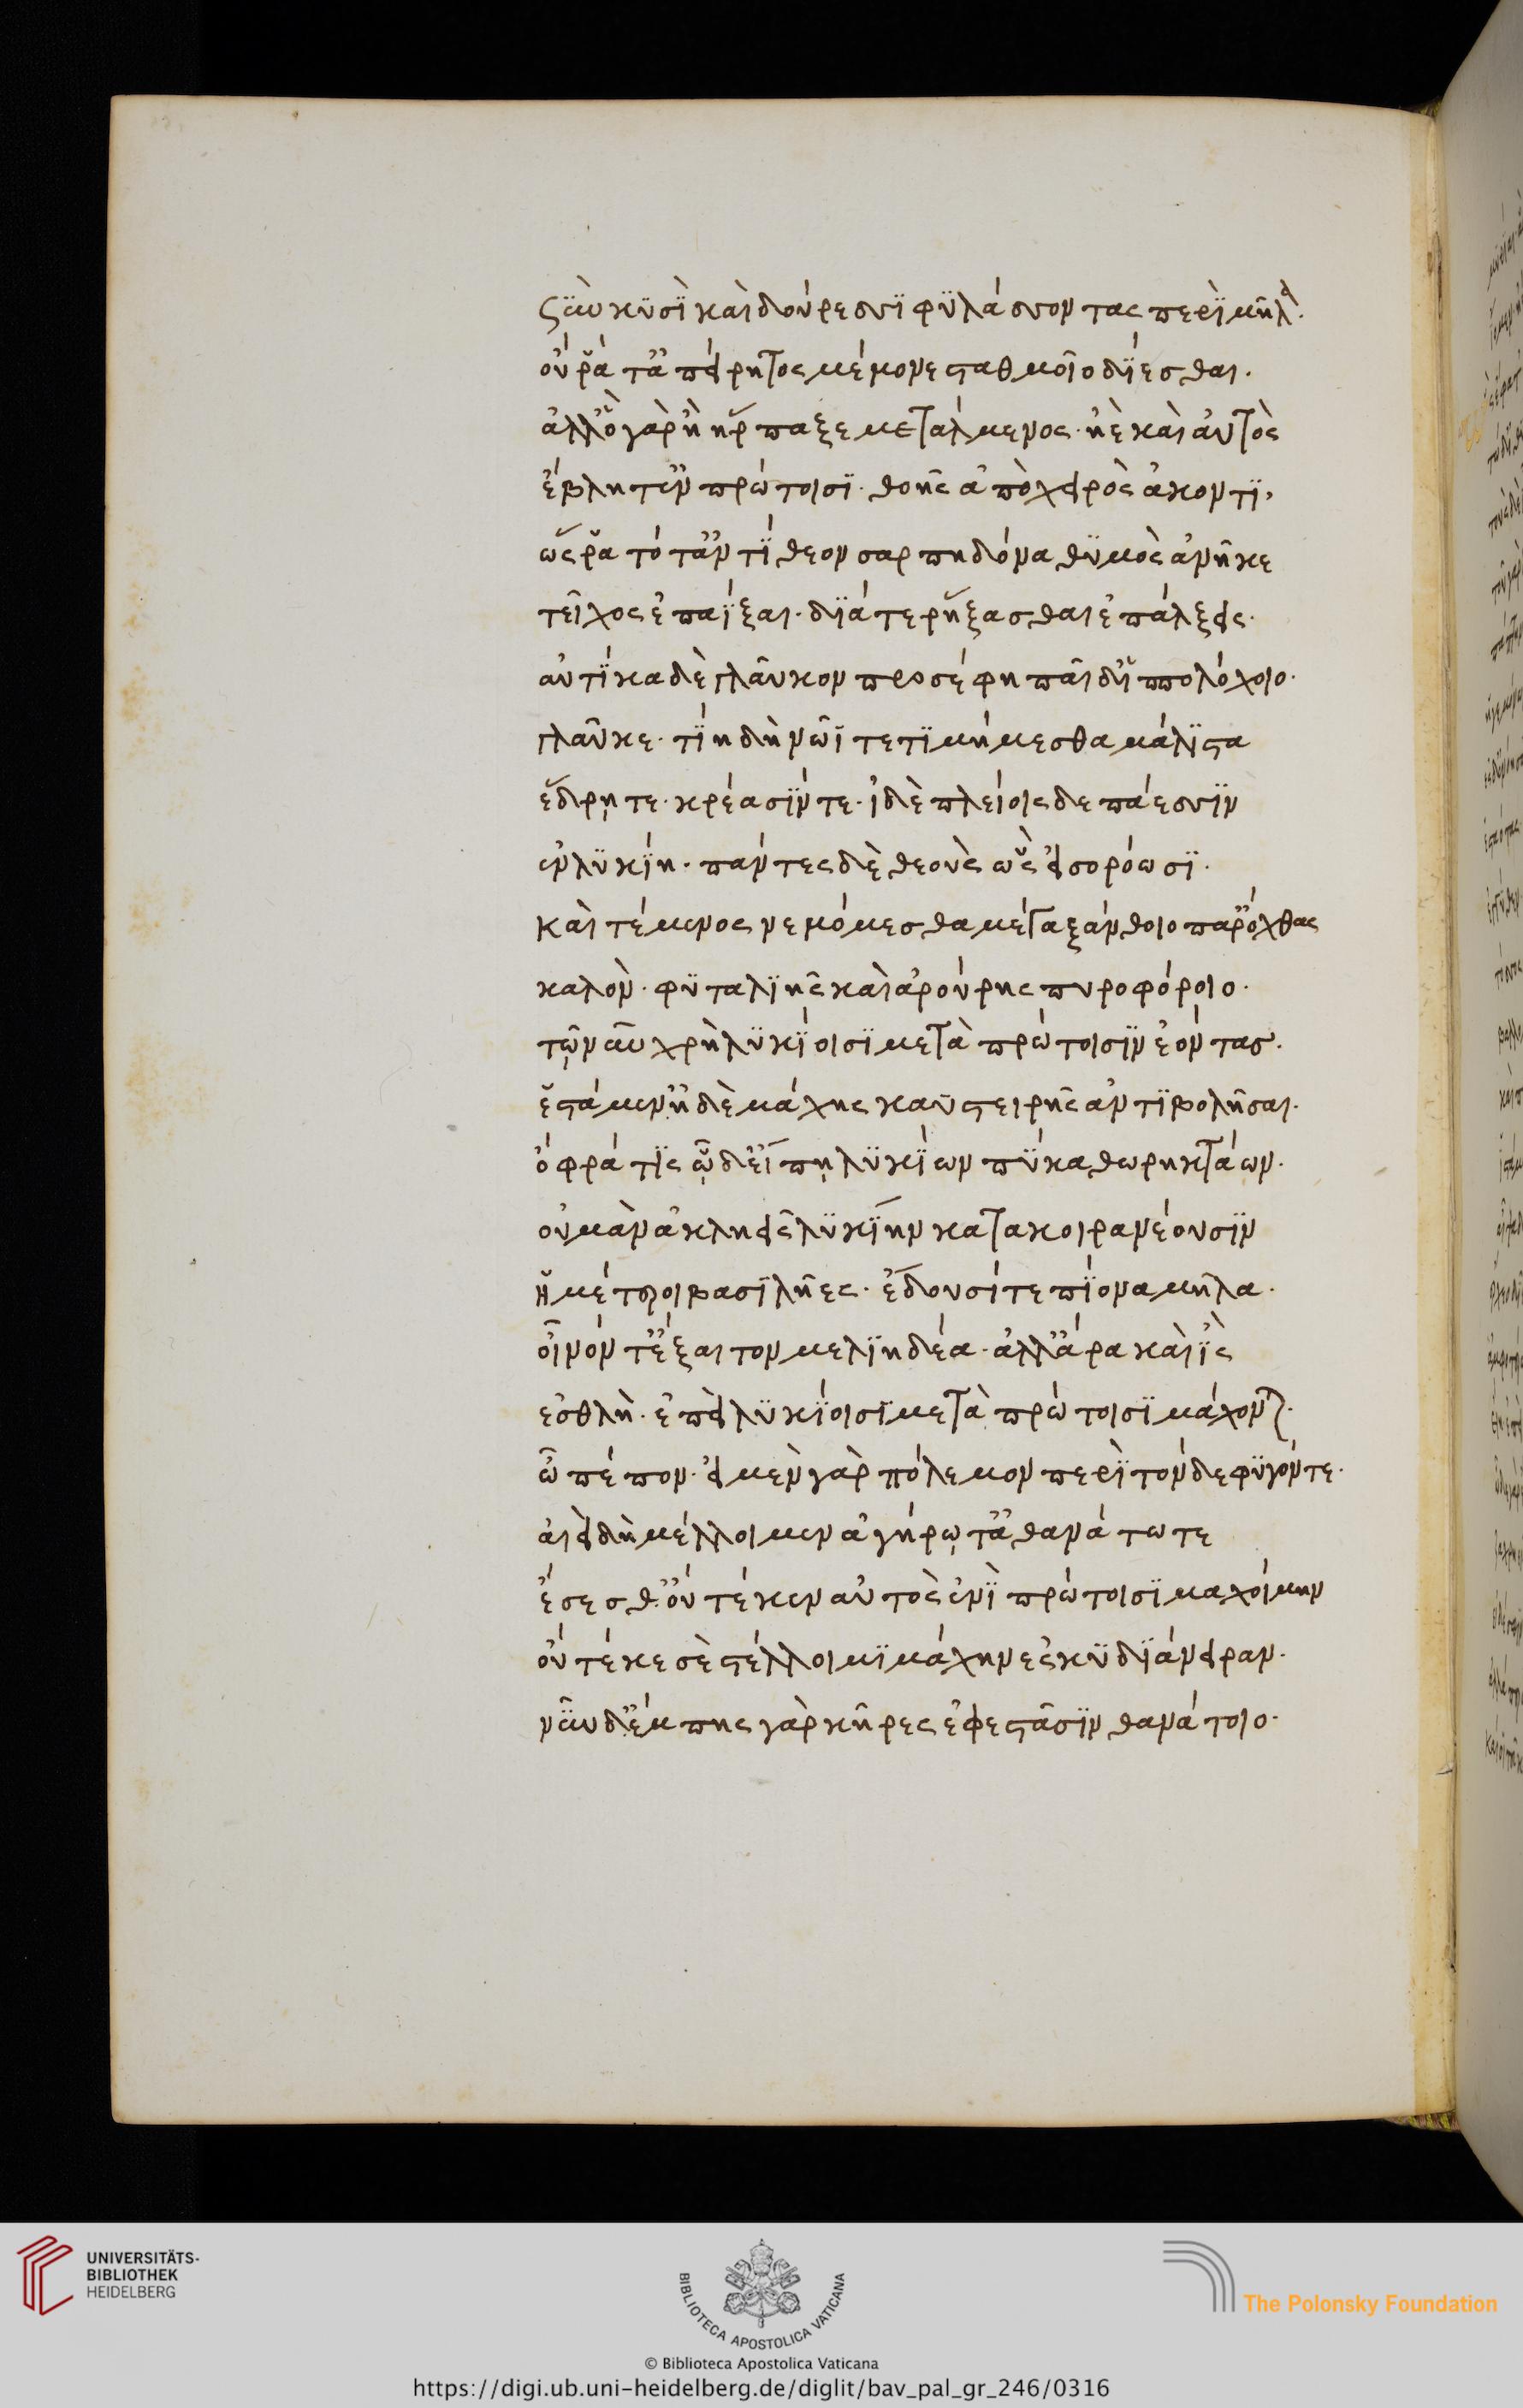 σὺν κυσὶ καὶ δούρεσσι φυλάσσοντας περὶ μῆλα·
οὔ ῥά τ' ἀπείρητος μέμονε σταθμοῖο δίεσθαι.
ἀλλ' ὅ γὰρ ἢ ἥρπαξε μετάλμενος· ἠὲ καὶ αὐτὸς
ἔβλητ' ἐν πρώτοισι· θοῆς ἀπὸ χειρὸς ἄκοντι,
ὥς ῥα τότ' ἀντίθεον σαρπηδόνα θυμὸς ἀνῆκε
τεῖχος ἐπαΐξαι· διά τε ῥήξασθαι ἐπάλξεις·
αὐτίκα δὲ γλαῦκον προσέφη παῖδ' ἱππολόχοιο·
γλαῦκε· τίη δὴ νῶϊ τετιμήμεσθα μάλιστα
ἕδρῃ τε· κρέασίν τε· ἰδὲ πλείοις δεπάεσσιν
ἐν λυκίῃ· πάντες δὲ θεοὺς ὣς εἰσορόωσι·
καὶ τέμενος νεμόμεσθα μέγα ξάνθοιο παρ' ὄχθας
καλὸν· φυταλιῆς καὶ ἀρούρης πυροφόροιο·
τῷ νῦν χρὴ λυκίοισι μετὰ πρώτοισιν ἐόντας·
ἑστάμεν ἠδὲ μάχης καυστειρῆς ἀντιβολῆσαι·
ὄφρά τις ὧδ' εἴπῃ λυκίων πύκα θωρηκτάων·
οὐ μὰν ἀκλειεῖς λυκίην κατακοιρανέουσιν
ἡμέτεροι βασιλῆες· ἔδουσί τε πίονα μῆλα·
οἶνόν τ' ἔξαιτον μελιηδέα· ἀλλ' ἄρα καὶ ἲς
ἐσθλὴ· ἐπεὶ λυκίοισι μετὰ πρώτοισι μάχονται·
ὦ πέπον· εἰ μὲν γὰρ πόλεμον περὶ τόνδε φυγόντε·
αἰεὶ δὴ μέλλοιμεν ἀγήρω τ' ἀθανάτω τε
ἔσεσθ' οὔτέ κεν αὐτὸς ἐνὶ πρώτοισι μαχοίμην
οὔτέ κε σὲ στέλλοιμι μάχην ἐς κυδιάνειραν·
νῦν δ' ἔμπης γὰρ κῆρες ἐφεστᾶσιν θανάτοιο·
UNIVERSITÄTS-
BIBLIOTHEK
HEIDELBERG
BIBLIOTECA APOSTOLICA VATICANA
The Polonsky Foundation
© Biblioteca Apostolica Vaticana
https://digi.ub.uni-heidelberg.de/diglit/bav_pal_gr_246/0316